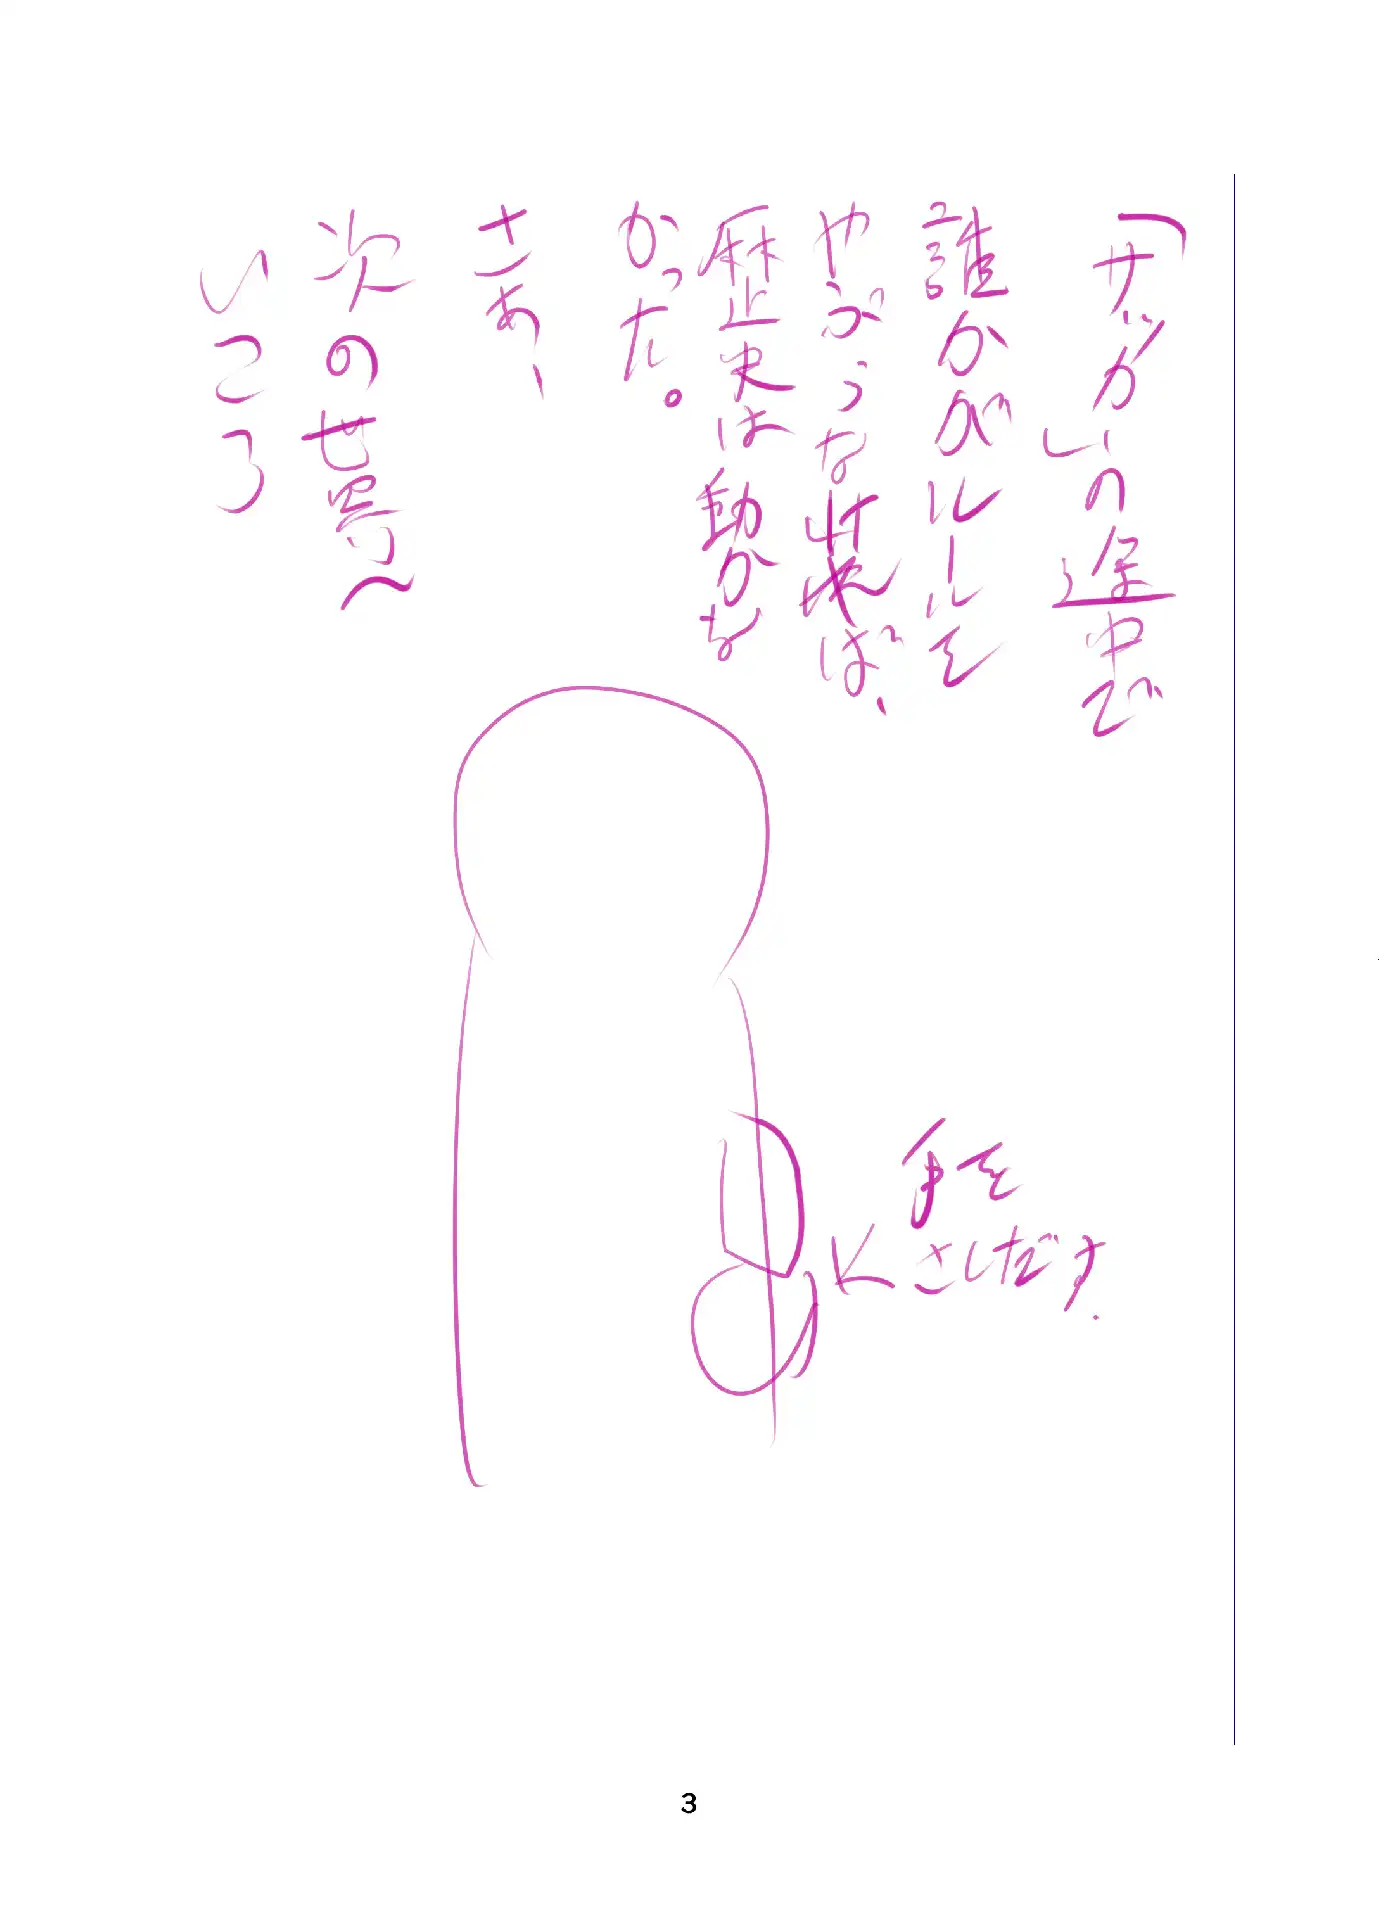 「サッカーの途中で
誰かがルールを
やぶらなければ、
歴史は動かな
かった。
さあ、
次の世界へ
いこう
手を
さしだす.
3